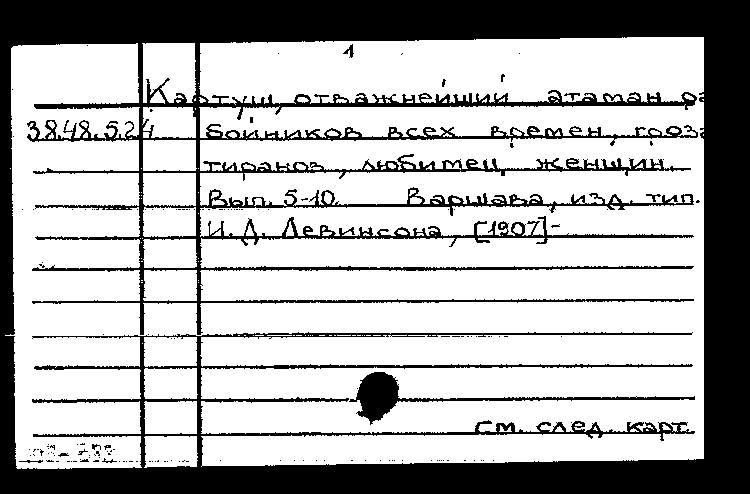 1
Картуш, отважнейший атаман ра
38.48.5.24 бойников всех времен, гроза
тиранов, любимец женщин.
Вып. 5-10. Варшава, изд. тип.
И. Д. Левинсона, [1907]-
см. след. карт.